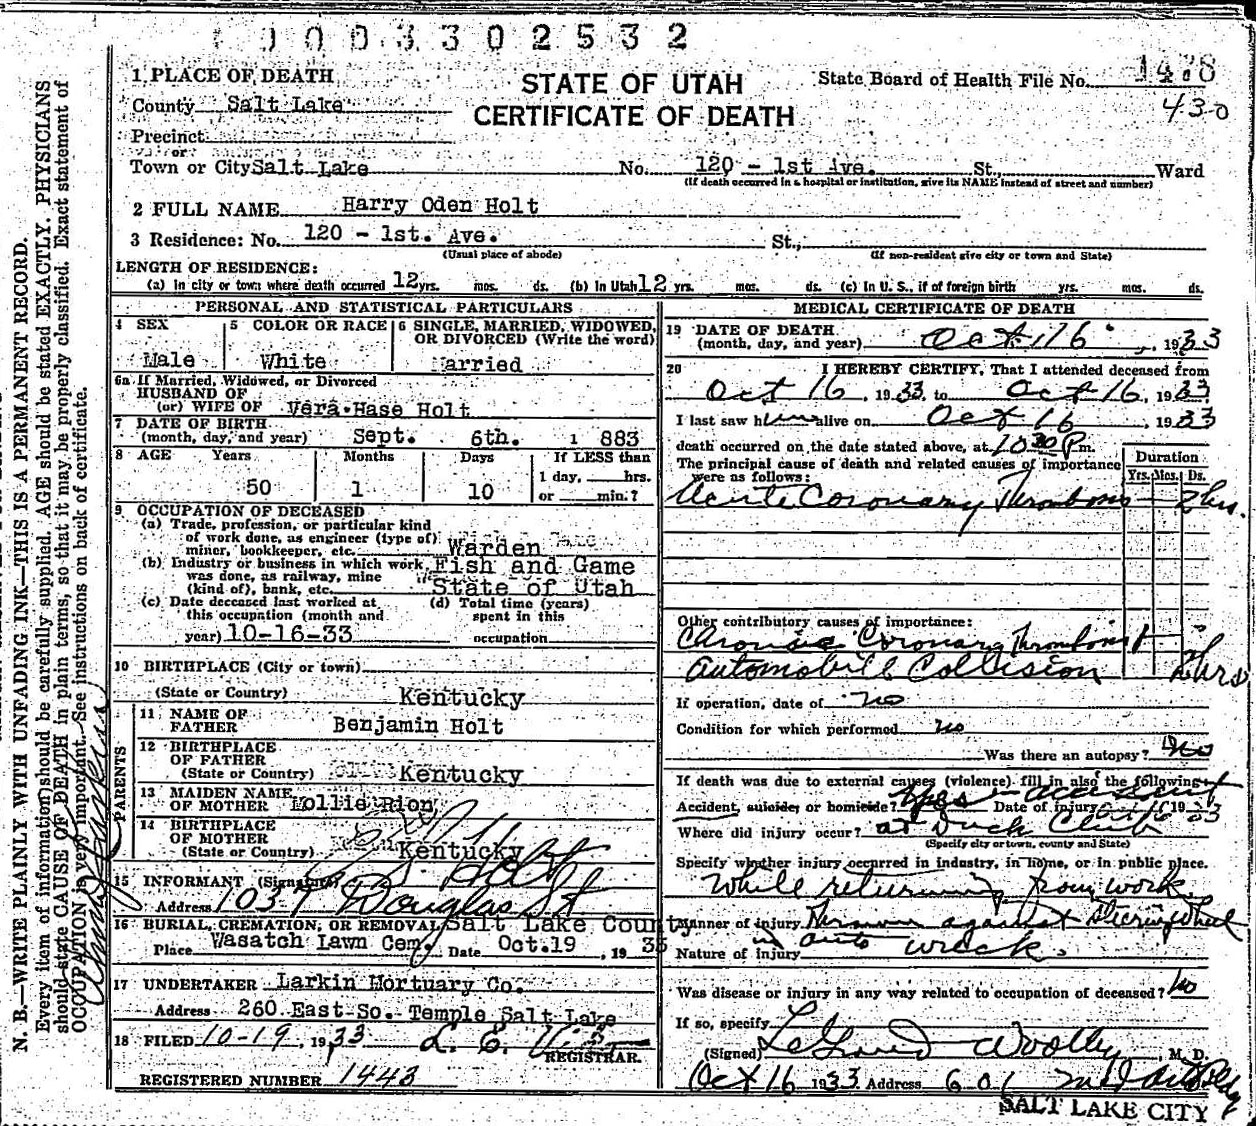 0003302532
1 PLACE OF DEATH
STATE OF UTAH
CERTIFICATE OF DEATH
State Board of Health File No. 1478
430
County Salt Lake
Precinct
or
Town or City Salt Lake No. 120 - 1st Ave. St., Ward
(If death occurred in a hospital or institution, give its NAME instead of street and number)
2 FULL NAME Harry Oden Holt
3 Residence: No. 120 - 1st. Ave. St.,
(Usual place of abode) (If non-resident give city or town and State)
LENGTH OF RESIDENCE:
(a) In city or town where death occurred 12 yrs. mos. ds. (b) In Utah 12 yrs. mos. ds. (c) In U. S., if of foreign birth yrs. mos. ds.
PERSONAL AND STATISTICAL PARTICULARS
4 SEX
Male
5 COLOR OR RACE
White
6 SINGLE, MARRIED, WIDOWED,
OR DIVORCED (Write the word)
Married
6a If Married, Widowed, or Divorced
HUSBAND OF
(or) WIFE OF Vera Hase Holt
7 DATE OF BIRTH
(month, day, and year) Sept. 6th. 1 883
8 AGE Years Months Days If LESS than
1 day, hrs.
50 1 10 or min.?
9 OCCUPATION OF DECEASED
(a) Trade, profession, or particular kind
of work done, as engineer (type of)
miner, bookkeeper, etc. Warden
(b) Industry or business in which work Fish and Game
was done, as railway, mine
(kind of), bank, etc. State of Utah
(c) Date deceased last worked at
this occupation (month and
year) 10-16-33
(d) Total time (years)
spent in this
occupation
10 BIRTHPLACE (City or town)
(State or Country) Kentucky
PARENTS
11 NAME OF
FATHER Benjamin Holt
12 BIRTHPLACE
OF FATHER
(State or Country) Kentucky
13 MAIDEN NAME
OF MOTHER Mollie Rion
14 BIRTHPLACE
OF MOTHER
(State or Country) Kentucky
15 INFORMANT (Signature) Holt
Address 1037 Douglas St
16 BURIAL, CREMATION, OR REMOVAL Salt Lake Count
Place Wasatch Lawn Cem. Date Oct.19 , 19 33
17 UNDERTAKER Larkin Mortuary Co.
Address 260 East So. Temple Salt Lake
18 FILED 10-19, 1933 L. E.
REGISTRAR.
REGISTERED NUMBER 1443
MEDICAL CERTIFICATE OF DEATH
19 DATE OF DEATH
(month, day, and year) Oct. 16 , 1933
20 I HEREBY CERTIFY, That I attended deceased from
Oct 16, 1933, to Oct 16, 1933
I last saw him alive on Oct 16, 1933
death occurred on the date stated above, at 10 30 P m.
The principal cause of death and related causes of importance
were as follows:
Duration
Yrs. Mos. Ds.
Acute Coronary Thrombosis 2 hrs.
Other contributory causes of importance:
Coronary Thrombosis
Automobile Collision 2 hrs
If operation, date of no
Condition for which performed no
Was there an autopsy? no
If death was due to external causes (violence) fill in also the following:
Accident, suicide, or homicide? yes - accident Date of injury Oct 16 1933
Where did injury occur? at Duck Club
(Specify city or town, county and State)
Specify whether injury occurred in industry, in home, or in public place.
While returning from work
Manner of injury Thrown against steering wheel
in auto wreck.
Nature of injury
Was disease or injury in any way related to occupation of deceased? No
If so, specify
(Signed) LeGrand Woolley M. D.
Oct 16 1933 Address 601 Med Arts Bldg
SALT LAKE CITY
N. B.—WRITE PLAINLY WITH UNFADING INK—THIS IS A PERMANENT RECORD.
Every item of information should be carefully supplied. AGE should be stated EXACTLY. PHYSICIANS
should state CAUSE OF DEATH in plain terms, so that it may be properly classified. Exact statement of
OCCUPATION is very important. See instructions on back of certificate.